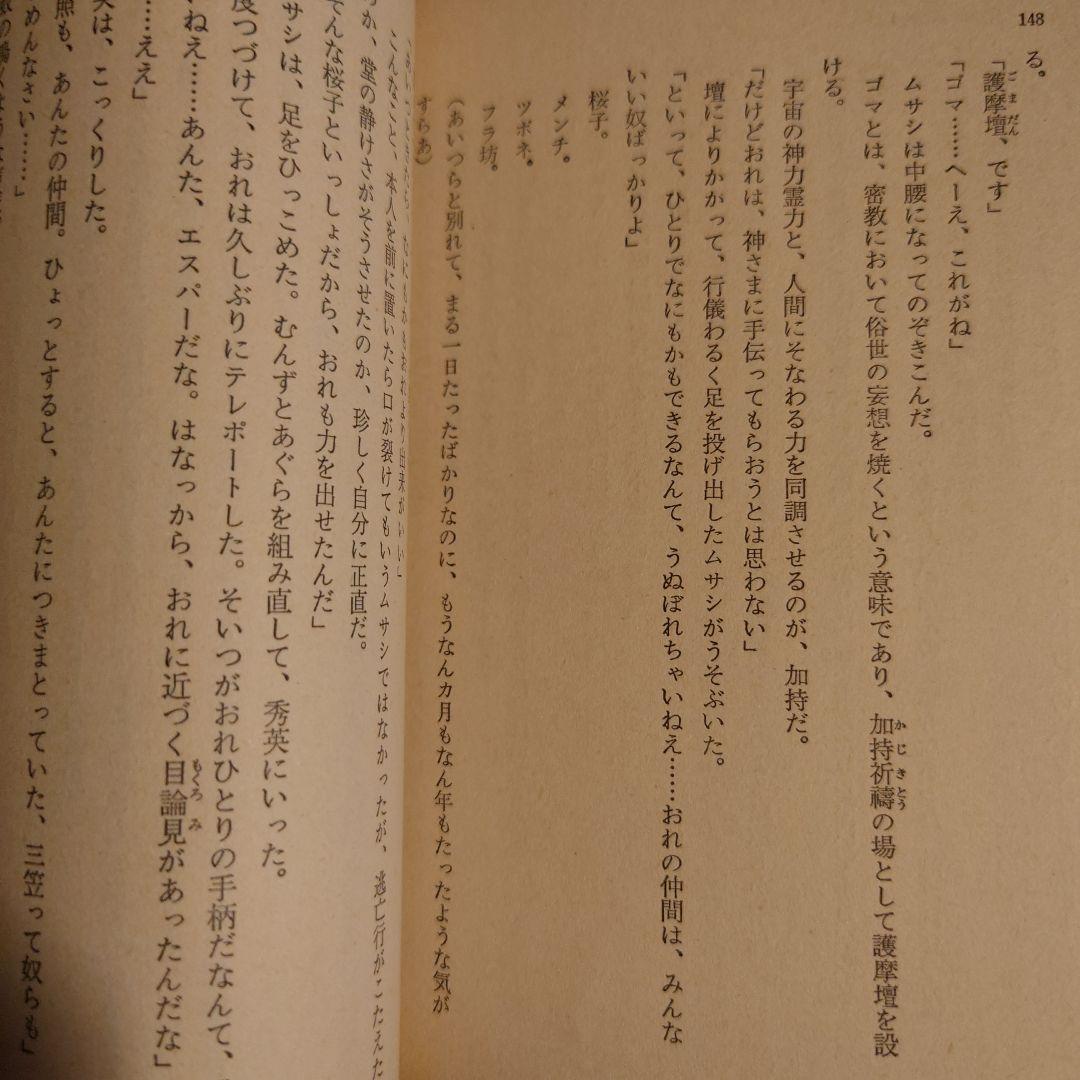 148
る。
「護摩壇、です」
「ゴマ……へーえ、これがね」
ムサシは中腰になってのぞきこんだ。
ゴマとは、密教において俗世の妄想を焼くという意味であり、加持祈禱の場として護摩壇を設
ける。
宇宙の神力霊力と、人間にそなわる力を同調させるのが、加持だ。
「だけどおれは、神さまに手伝ってもらおうとは思わない」
壇によりかかって、行儀わるく足を投げ出したムサシがうそぶいた。
「といって、ひとりでなにもかもできるなんて、うぬぼれちゃいねえ……おれの仲間は、みんな
いい奴ばっかりよ」
桜子。
メンチ。
ツボネ。
フラ坊。
（あいつらと別れて、まる一日たったばかりなのに、もうなんカ月もなん年もたったような気が
すらあ）
おれより出来がいい」
こんなこと、本人を前に置いたら口が裂けてもいうムサシではなかったが、逃亡行がこたえた
か、堂の静けさがそうさせたのか、珍しく自分に正直だ。
てんな桜子といっしょだから、おれも力を出せたんだ」
サシは、足をひっこめた。むんずとあぐらを組み直して、秀英にいった。
つづけて、おれは久しぶりにテレポートした。そいつがおれひとりの手柄だなんて、
ねえ……あんた、エスパーだな。はなっから、おれに近づく目論見があったんだな」
……ええ」
は、こっくりした。
も、あんたの仲間。ひょっとすると、あんたにつきまとっていた、三笠って奴らも」
めんなさい……」